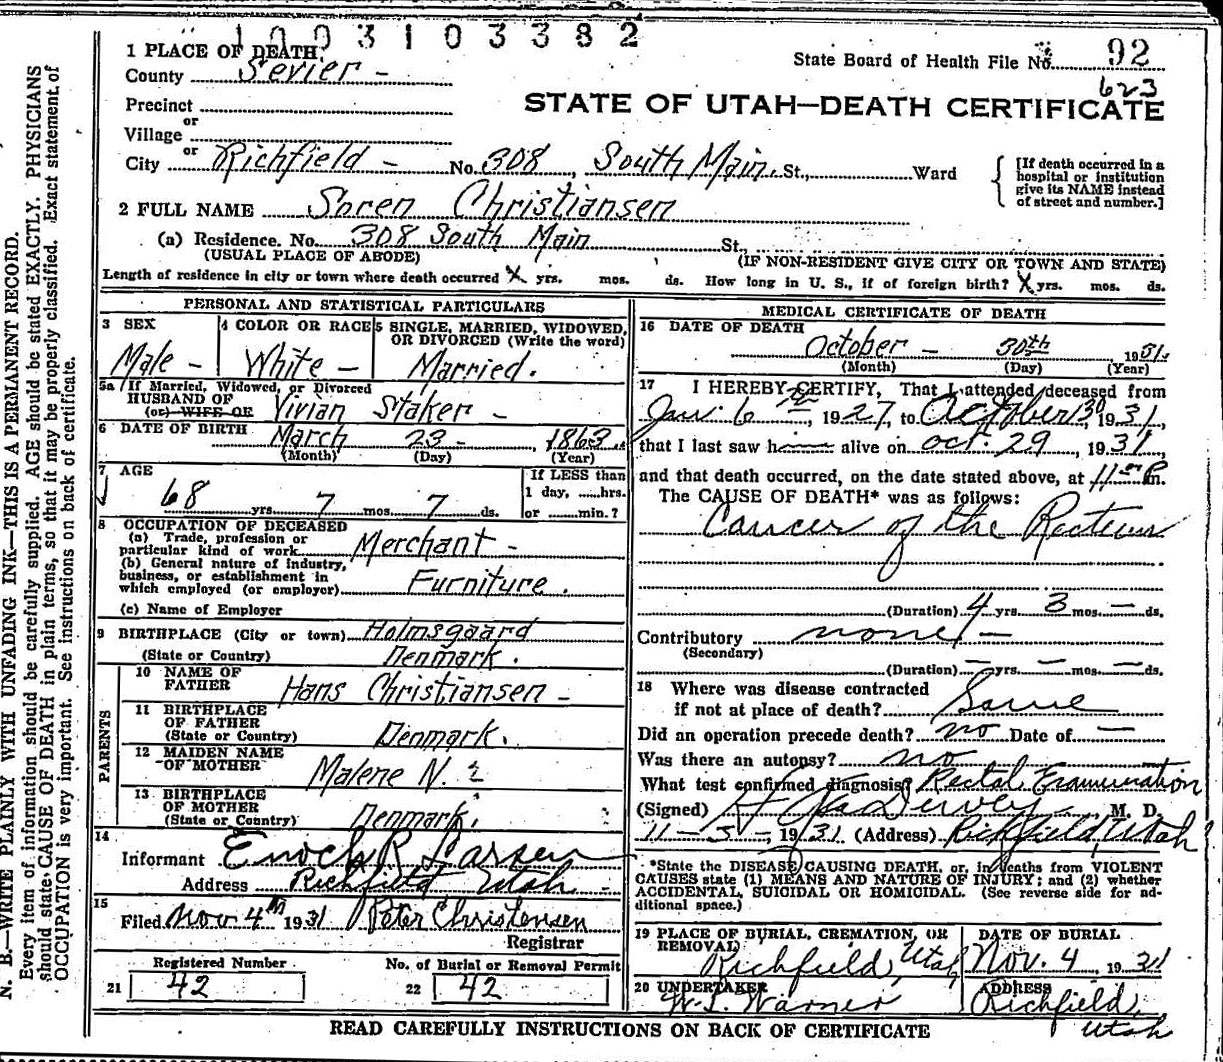 1 0 0 3 1 0 3 3 8 2
1 PLACE OF DEATH
State Board of Health File No. 92
County Sevier -
623
Precinct
STATE OF UTAH—DEATH CERTIFICATE
or
Village
or
City Richfield - No. 308, South Main. St., Ward
[If death occurred in a hospital or institution give its NAME instead of street and number.]
2 FULL NAME Soren Christiansen
(a) Residence. No. 308 South Main St.,
(USUAL PLACE OF ABODE) (IF NON-RESIDENT GIVE CITY OR TOWN AND STATE)
Length of residence in city or town where death occurred X yrs. mos. ds. How long in U. S., if of foreign birth? X yrs. mos. ds.
PERSONAL AND STATISTICAL PARTICULARS
3 SEX
Male -
4 COLOR OR RACE
White -
5 SINGLE, MARRIED, WIDOWED, OR DIVORCED (Write the word)
Married.
5a If Married, Widowed, or Divorced
HUSBAND OF
(or) WIFE OF Vivian Staker -
6 DATE OF BIRTH March 23 - 1863
(Month) (Day) (Year)
7 AGE
68 yrs. 7 mos. 7 ds.
If LESS than
1 day, ......hrs.
or ......min.?
8 OCCUPATION OF DECEASED
(a) Trade, profession or
particular kind of work Merchant -
(b) General nature of industry,
business, or establishment in
which employed (or employer) Furniture.
(c) Name of Employer
9 BIRTHPLACE (City or town) Holmsgaard
(State or Country) Denmark.
PARENTS
10 NAME OF
FATHER Hans Christiansen -
11 BIRTHPLACE
OF FATHER
(State or Country) Denmark.
12 MAIDEN NAME
OF MOTHER Malene N. ?
13 BIRTHPLACE
OF MOTHER
(State or Country) Denmark.
14
Informant Enoch R Larsen
Address Richfield Utah -
15
Filed Nov 4th 1931 Peter Christensen
Registrar
Registered Number
21 42
No. of Burial or Removal Permit
22 42
MEDICAL CERTIFICATE OF DEATH
16 DATE OF DEATH
October - 30th 1931.
(Month) (Day) (Year)
17 I HEREBY CERTIFY, That I attended deceased from
Jan. 6th, 1927, to October 30, 1931,
that I last saw him alive on Oct. 29, 1931,
and that death occurred, on the date stated above, at 11 P m.
The CAUSE OF DEATH* was as follows:
Cancer of the Rectum
(Duration) 4 yrs. 3 mos. — ds.
Contributory none -
(Secondary)
(Duration) — yrs. — mos. — ds.
18 Where was disease contracted
if not at place of death? Same
Did an operation precede death? no Date of —
Was there an autopsy? no
What test confirmed diagnosis? Rectal Examination
(Signed) Dewey M. D.
11-3-, 1931 (Address) Richfield, Utah
*State the DISEASE CAUSING DEATH, or, in deaths from VIOLENT
CAUSES state (1) MEANS AND NATURE OF INJURY; and (2) whether
ACCIDENTAL, SUICIDAL OR HOMICIDAL. (See reverse side for ad-
ditional space.)
19 PLACE OF BURIAL, CREMATION, OR
REMOVAL
Richfield, Utah
DATE OF BURIAL
Nov. 4 1931
20 UNDERTAKER
W. L. Warner
ADDRESS
Richfield,
Utah
READ CAREFULLY INSTRUCTIONS ON BACK OF CERTIFICATE
N. B.—WRITE PLAINLY WITH UNFADING INK—THIS IS A PERMANENT RECORD.
Every item of information should be carefully supplied. AGE should be stated EXACTLY. PHYSICIANS
should state CAUSE OF DEATH in plain terms, so that it may be properly classified. Exact statement of
OCCUPATION is very important. See instructions on back of certificate.